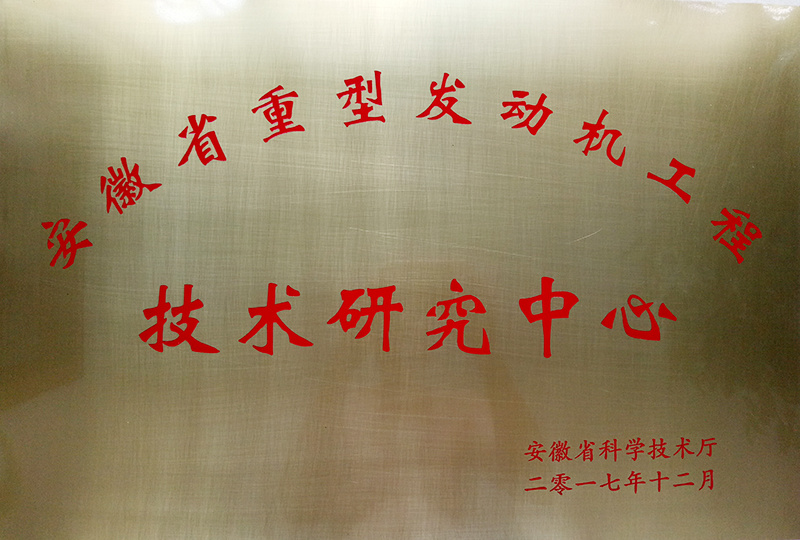 安徽省重型发动机工程
技术研究中心
安徽省科学技术厅
二零一七年十二月